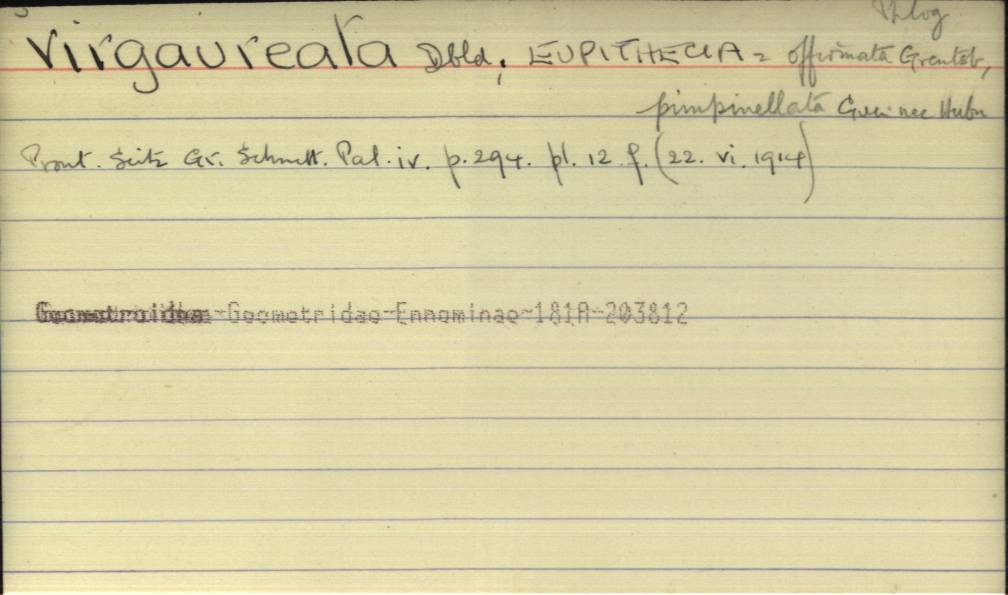 Phlog
virgaureata Dbld, EUPITHECIA = offirmata
pimpinellata Guen nec Hubn
Prout. Seitz Gr. Schmett. Pal. iv. p. 294. pl. 12 f. (22. vi. 1914)
Geometroidea-Geometridae-Ennominae-181A-203812